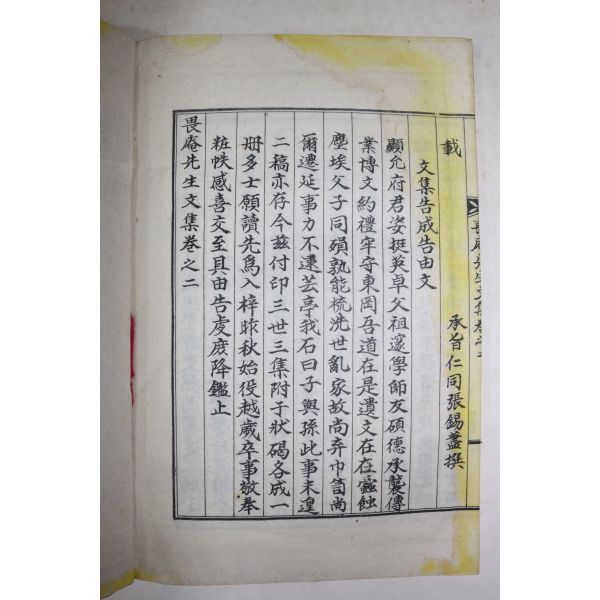 畏庵先生文集卷之二
承旨仁同張錫藎撰
載
文集告成告由文
顯允府君姿挺英卓父祖邃學師友碩德承襲傳
業博文約禮牢守東岡吾道在是遺文在在蠹蝕
塵埃父子同殞孰能梳洗世亂家故尚弃巾笥尚
爾遷延事力不逮芸亭我石曰子與孫此事未遑
二稿亦存今玆付印三世三集附于狀碣各成一
册多士願讀先爲入梓昨秋始役越歲卒事敬奉
粧帙感喜交至具由告虔庶降鑑止
畏庵先生文集卷之二